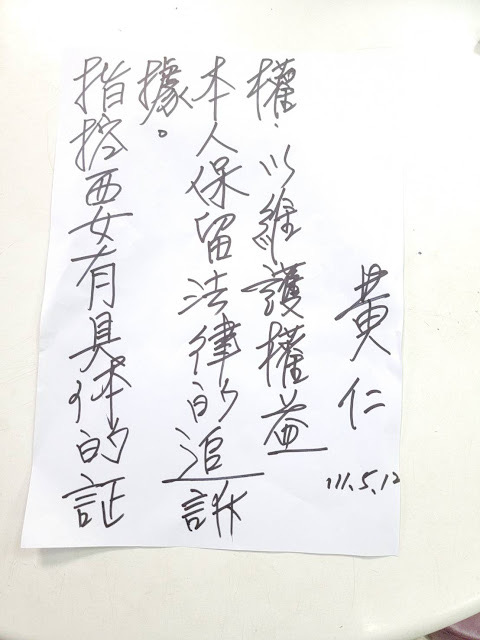 指控要有具体的証
據。
本人保留法律的追訴
權、以維護權益
黃仁
111.5.12